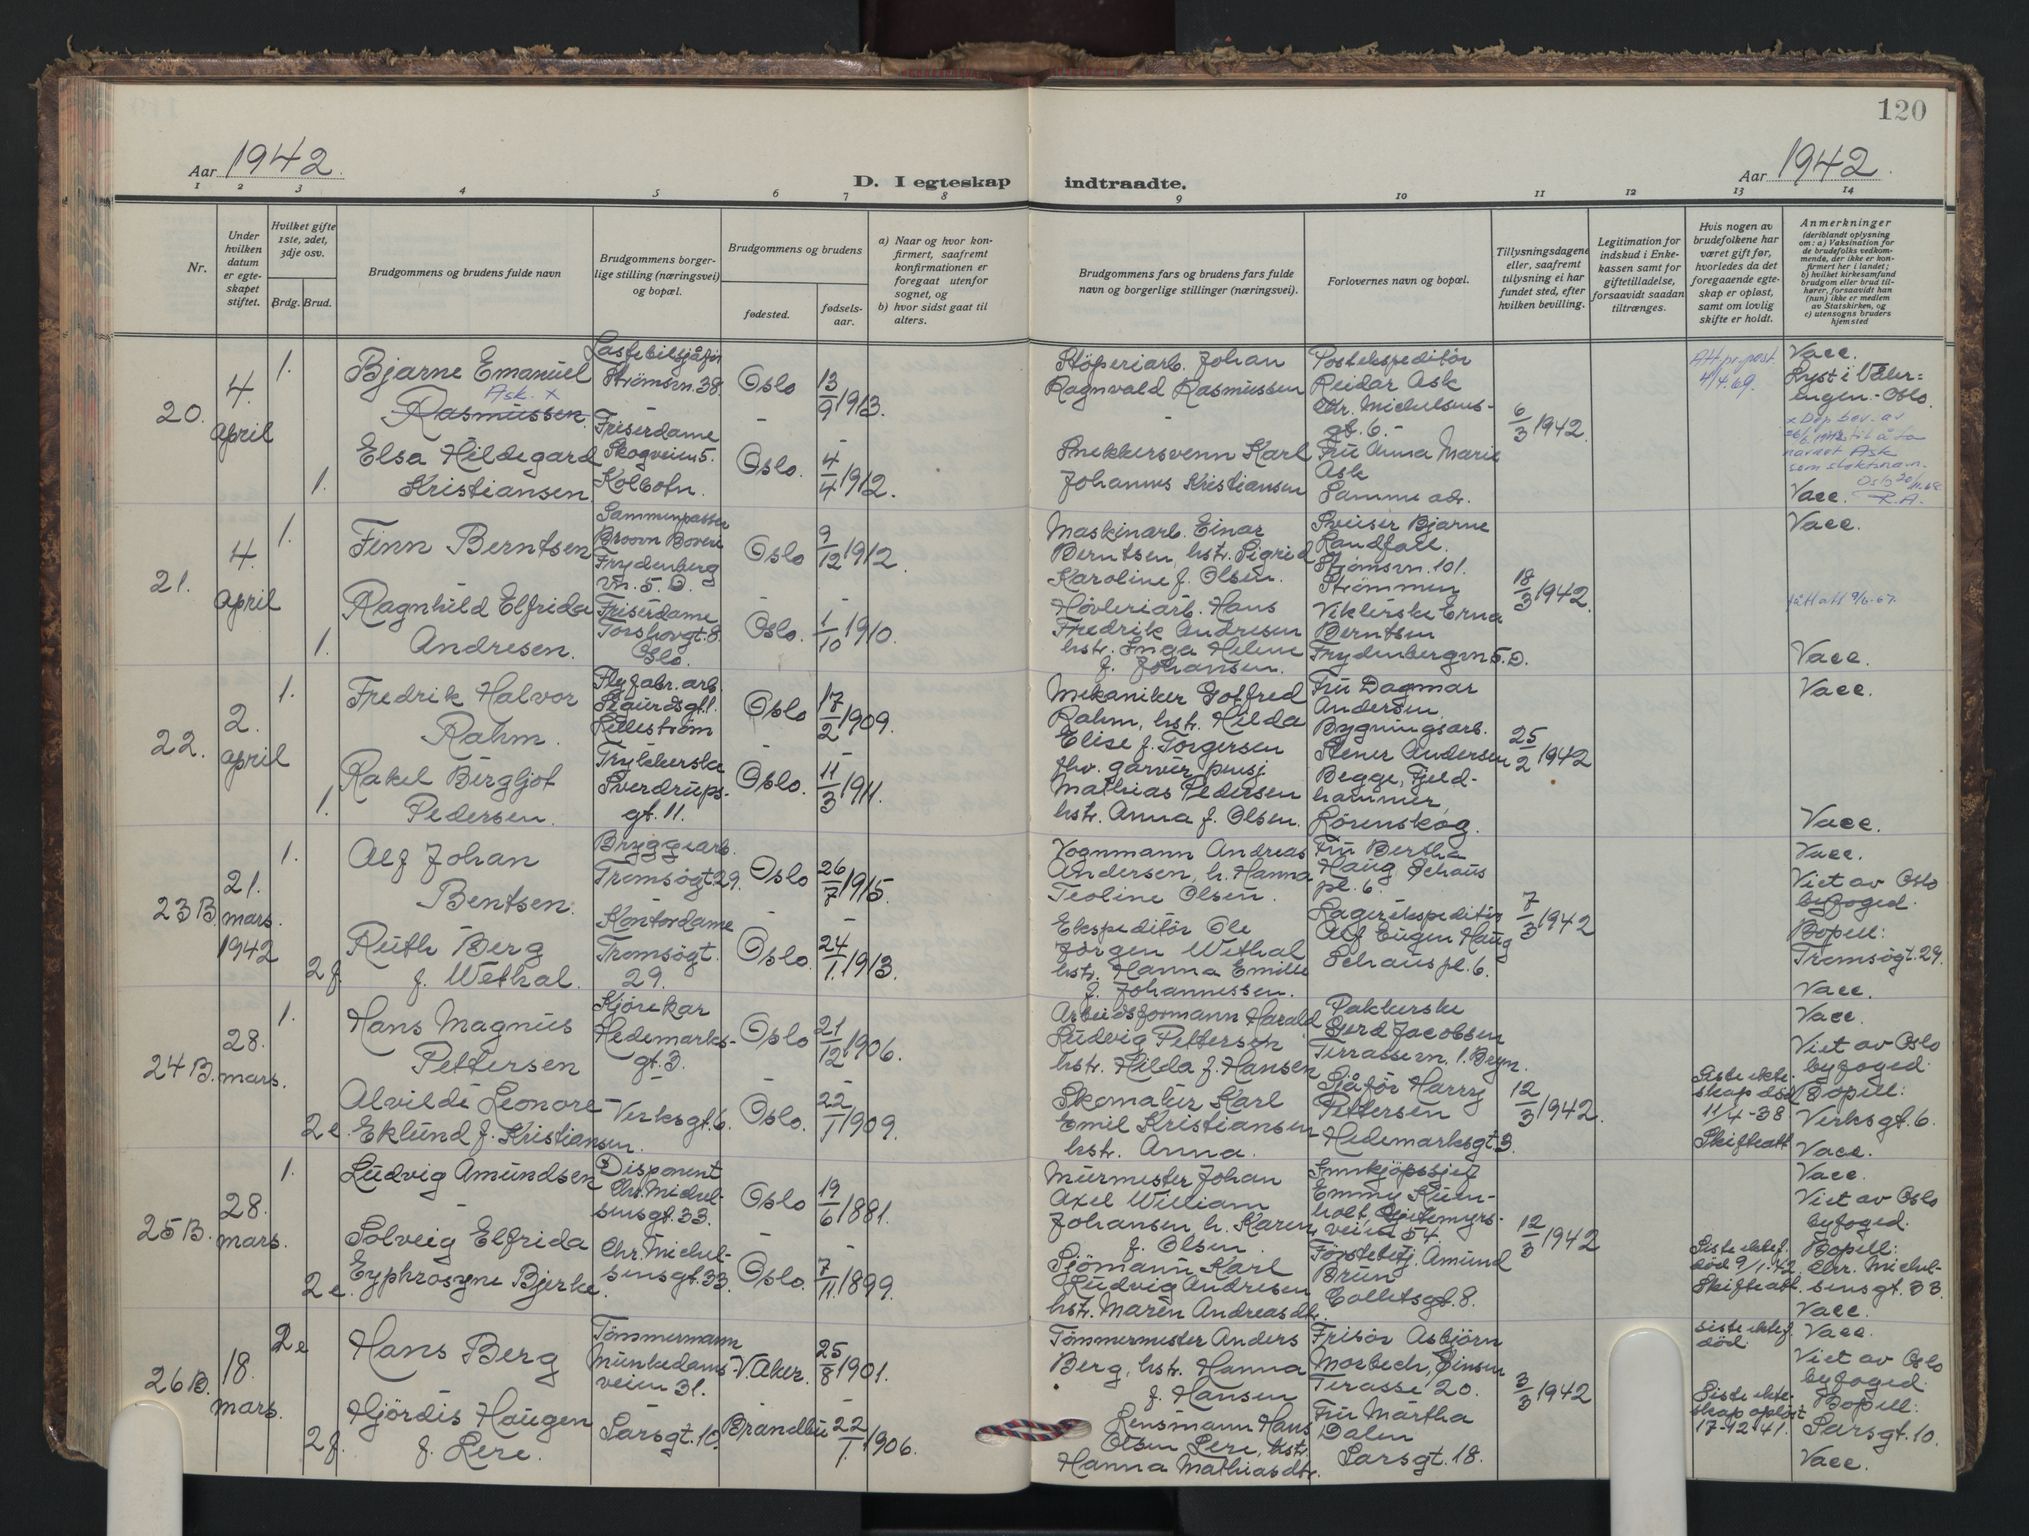 120
Aar 1942.
D. I egteskap indtraadte.
Aar 1942.
1 2 3 4 5 6 7 8 9 10 11 12 13 14
Nr.
Under
hvilken
datum
er egte-
skapet
stiftet.
Hvilket gifte
1ste, 2det,
3dje osv.
Brdg. Brud.
Brudgommens og brudens fulde navn
Brudgommens borger-
lige stilling (næringsvei)
og bopæl.
Brudgommens og brudens
fødested.
fødsels-
aar.
a) Naar og hvor kon-
firmert, saafremt
konfirmationen er
foregaat utenfor
sognet, og
b) hvor sidst gaat til
alters.
Brudgommens fars og brudens fars fulde
navn og borgerlige stillinger (næringsvei).
Forlovernes navn og bopæl.
Tillysningsdagene
eller, saafremt
tillysning ei har
fundet sted, efter
hvilken bevilling.
Legitimation for
indskud i Enke-
kassen samt for
giftetilladelse,
forsaavidt saadan
tiltrænges.
Hvis nogen av
brudefolkene har
været gift før,
hvorledes da det
foregaaende egte-
skap er opløst,
samt om lovlig
skifte er holdt.
Anmerkninger
(deriblandt oplysning
om: a) Vaksination for
de brudefolks vedkom-
mende, der ikke er kon-
firmert her i landet;
b) hvilket kirkesamfund
brudgom eller brud til-
hører, forsaavidt han
(hun) ikke er medlem
av Statskirken, og
c) utensogns bruders
hjemsted
20.
4.
april
1.
Bjarne Emanuel
Ask. x
Rasmussen
Lastebilsjåfør
Strømsvn. 38.
Oslo
13/9 1913.
Støperiarb. Johan
Ragnvald Rasmussen
Postekspeditør
Reidar Ask
Chr. Michelsens-
gt. 6.
6/3 1942.
Att. pr. post.
4/4.69.
Vacc.
Lyst i Våler-
engen - Oslo.
1.
Elsa Hildegard
Kristiansen
Friserdame
Skogveien 5.
Kolbotn.
Oslo.
4/4 1912.
Snekkersvenn Karl
Johannes Kristiansen
Fru Anna Marie
Ask
Samme adr.
navnet Ask
som slektsnavn.
Vacc. R.A.
21.
4.
april
1.
Finn Berntsen
Sammenpasser
Brown Boveri
Frydenberg
vn. 5. D.
Oslo
9/12 1912.
Maskinarb. Einar
Berntsen hstr. Sigrid
Karoline f. Olsen.
Sveiser Bjarne
Landfall.
Strømsvn. 101.
Strømmen
18/3 1942.
Vacc.
1.
Ragnhild Elfrida
Andresen.
Friserdame
Torshovgt. 8
Oslo.
Oslo.
1/10 1910.
Høvleriarb. Hans
Fredrik Andresen
hstr. Inga Helene
f. Johansen.
Viklerske Erna
Berntsen
Frydenbergvn 5. D.
Vacc.
22.
2.
april
1.
Fredrik Halvor
Rahm.
Flyfabr. arb.
Sigurdsgt. 1.
Lillestrøm
Oslo
17/2 1909.
Mekaniker Gotfred
Rahm, hstr. Hilda
Elise f. Torgersen
Fru Dagmar
Andersen.
Bygningsarb.
Stener Andersen
25/2 1942
Vacc.
1.
Rakel Bergljot
Pedersen.
Trykkerske
Sverdrups-
gt. 11.
Oslo.
11/3 1911.
fhv. garver pensj.
Mathias Pedersen
hstr. Anna f. Olsen.
Begge, Fjeld-
hammer,
Lørenskog.
Vacc.
23 B.
21.
mars.
1942
1.
Alf Johan
Bentsen.
Bryggearb.
Tromsøgt 29.
Oslo
26/7 1915.
Vognmann Andreas
Andersen, h. Hanna
Teoline Olsen.
Fru Bertha
Haug Schous
pl. 6.
7/3 1942
Vacc.
Viet av Oslo
byfoged.
2 f.
Ruth Berg
f. Wethal.
Kontordame
Tromsøgt.
29.
Oslo.
24/1 1913.
Ekspeditør Ole
Jørgen Wethal
hstr. Hanna Emilie
f. Johannessen.
Lagerekspeditør
Alf Eugen Haug
Schous pl. 6.
Bopell:
Tromsøgt. 29.
Vacc.
24 B.
28.
mars.
1.
Hans Magnus
Pettersen
Kjørekar
Hedemarks-
gt. 3.
Oslo
21/12 1906.
Arbeidsformann Harald
Ludvig Petterson
hstr. Hilda f. Hansen
Pakkerske
Gerd Jacobsen
Terrassevn. 1. Bryn.
12/3 1942.
Vacc.
Viet av Oslo
byfoged.
2 e.
Alvilde Leonore
Eklund f. Kristiansen.
Verksgt. 6.
Oslo.
22/1 1909.
Skomaker Karl
Emil Kristiansen
hstr. Anna.
Sjåfør Harry
Pettersen
Hedemarksgt. 3.
Siste ekte-
skap død
11/4-38
Skifteatt
Bopell:
Verksgt. 6.
Vacc.
25 B.
28.
mars.
1.
Ludvig Amundsen
Disponent
Chr. Michel-
sensgt. 33.
Oslo
19/6 1881.
Murmester Johan
Axel William
Johansen h. Karen
f. Olsen.
Innkjøpssjef
Emmy Kuen-
holt,
veien 54.
12/3 1942
Vacc.
Viet av Oslo
byfoged.
2 e.
Solveig Elfrida
Eyphrosyne Bjerke.
Chr. Michel-
sensgt. 33.
Oslo.
7/11 1899.
Sjømann Karl
Ludvig Andresen
hstr. Maren Andreasdtr.
Førstebetj. Amund
Brun
Colletsgt. 8.
Siste ektef.
død 9/1.42.
Skifteatt.
Bopell:
Chr. Michel-
sensgt. 33.
Vacc.
26 B.
18.
mars.
2 e
Hans Berg
Tømmermann
Munkedams-
veien 31.
V. Aker.
25/8 1901.
Tømmermester Anders
Berg, hstr. Hanna
f. Hansen
Frisør Asbjørn
Morbech, Sinsen
Terasse 20.
3/3 1942
siste ektef.
død.
Vacc.
Viet av Oslo
byfoged.
2 f.
Hjørdis Haugen
f. Lere.
Sarsgt. 10.
Brandbu
22/1 1906.
Lensmann Hans
Olsen Lere, hstr.
Hanna Mathiasdtr.
Fru Martha
Dalen
Sarsgt. 18.
Siste ekte-
skap opløst
17-12-41.
Bopell:
Sarsgt. 10.
Vacc.